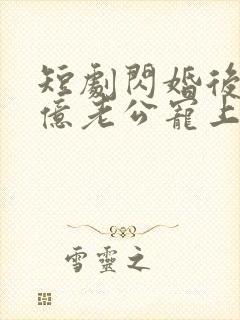 短劇閃婚後
億老公寵上
雪靈之